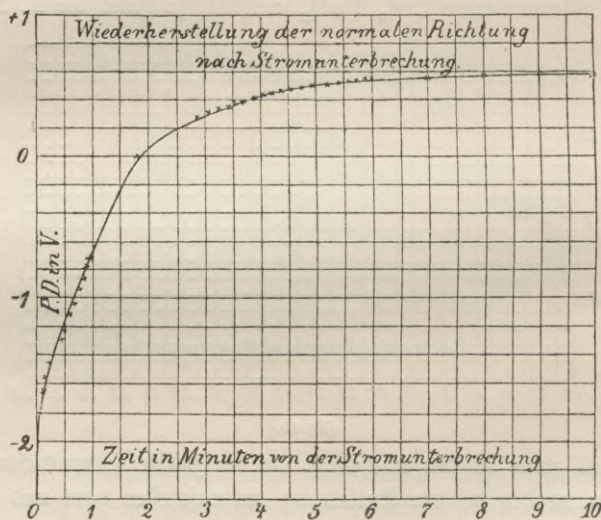 +1
Wiederherstellung der normalen Richtung
nach Stromunterbrechung.
0
P.D. in V.
-1
-2
Zeit in Minuten von der Stromunterbrechung
0 1 2 3 4 5 6 7 8 9 10